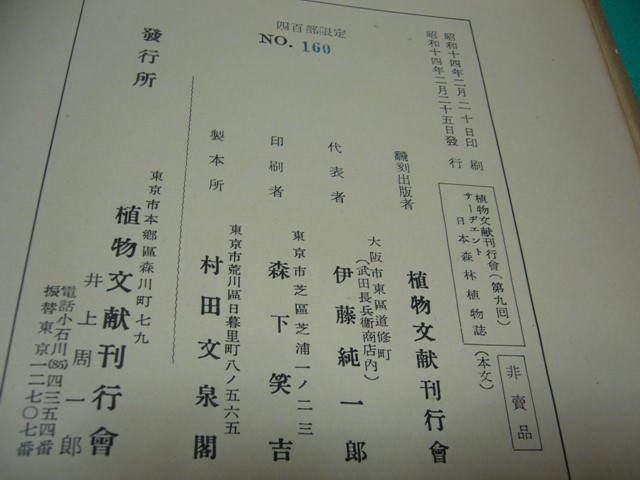 四百部限定
NO. 160
昭和十四年二月二十日印刷
昭和十四年二月二十五日發行
植物文献刊行會(第九回)
サーヂェント
日本森林植物誌
(本文)
非賣品
飜刻出版者
植物文献刊行會
大阪市東區道修町
(武田長兵衞商店內)
代表者
伊藤純一郎
東京市芝區芝浦一ノ二三
印刷者
森下笑吉
東京市荒川區日暮里町八ノ五六五
製本所
村田文泉閣
發行所
東京市本鄕區森川町七九
植物文献刊行會
井上周一郎
電話小石川(85)四三五四番
振替東京一二七〇七番